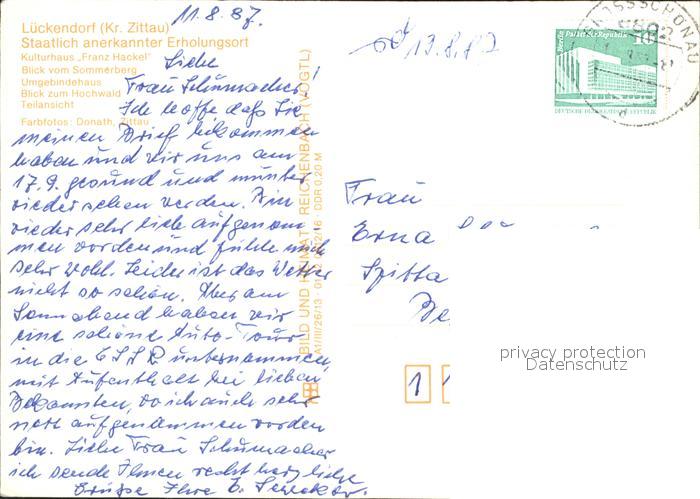 11.8.87.
Lückendorf (Kr. Zittau)
Staatlich anerkannter Erholungsort
Kulturhaus „Franz Hackel"
Blick vom Sommerberg
Umgebindehaus
Blick zum Hochwald
Teilansicht
Farbfotos: Donath, Zittau
Liebe
Frau Schumacher!
Ich hoffe daß Sie
meinen Brief bekommen
haben und wir uns am
17.9. gesund und munter
wiedersehen werden. Bin
wieder sehr lieb aufgenom
men worden und fühle mich
sehr wohl. Leider ist das Wetter
nicht so schön. Aber am
Sonnabend haben wir
eine schöne Auto-Tour
in die ČSSR unternommen,
mit Aufenthalt bei lieben
Bekannten, wo ich auch sehr
nett aufgenommen worden
bin. Liebe Frau Schumacher
ich sende Ihnen recht herzliche
Grüße Ihre
BILD UND HEIMAT REICHENBACH (VOGTL)
A1/III/26/13 DDR 0,20 M
13.8.87
GROSSSCHÖNAU
8802
Berlin Palast der Republik
10
DEUTSCHE DEMOKRATISCHE REPUBLIK
Frau
Erna
Spitta
Be
1
privacy protection
Datenschutz